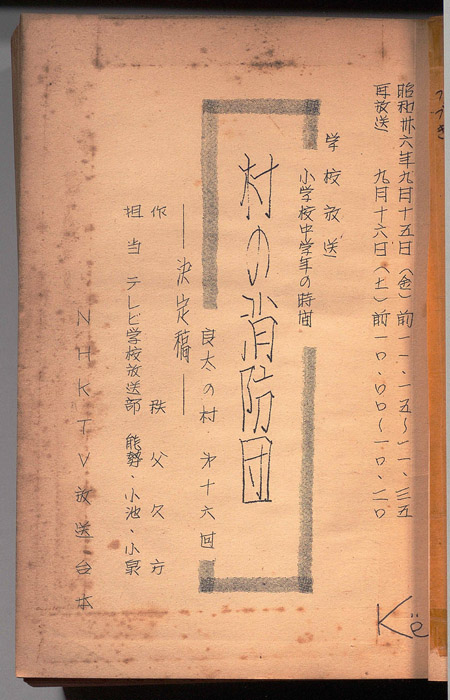 昭和卅六年九月十五日（金）前一一・一五〜一一・三五
再放送 九月十六日（土）前一〇・〇〇〜一〇・二〇
学校放送
小学校中学年の時間
村の消防団
良太の村 㐧十六回
――決定稿――
作 秩父久方
担当 テレビ学校放送部 能勢・小池・小泉
NHKTV放送台本
Kë